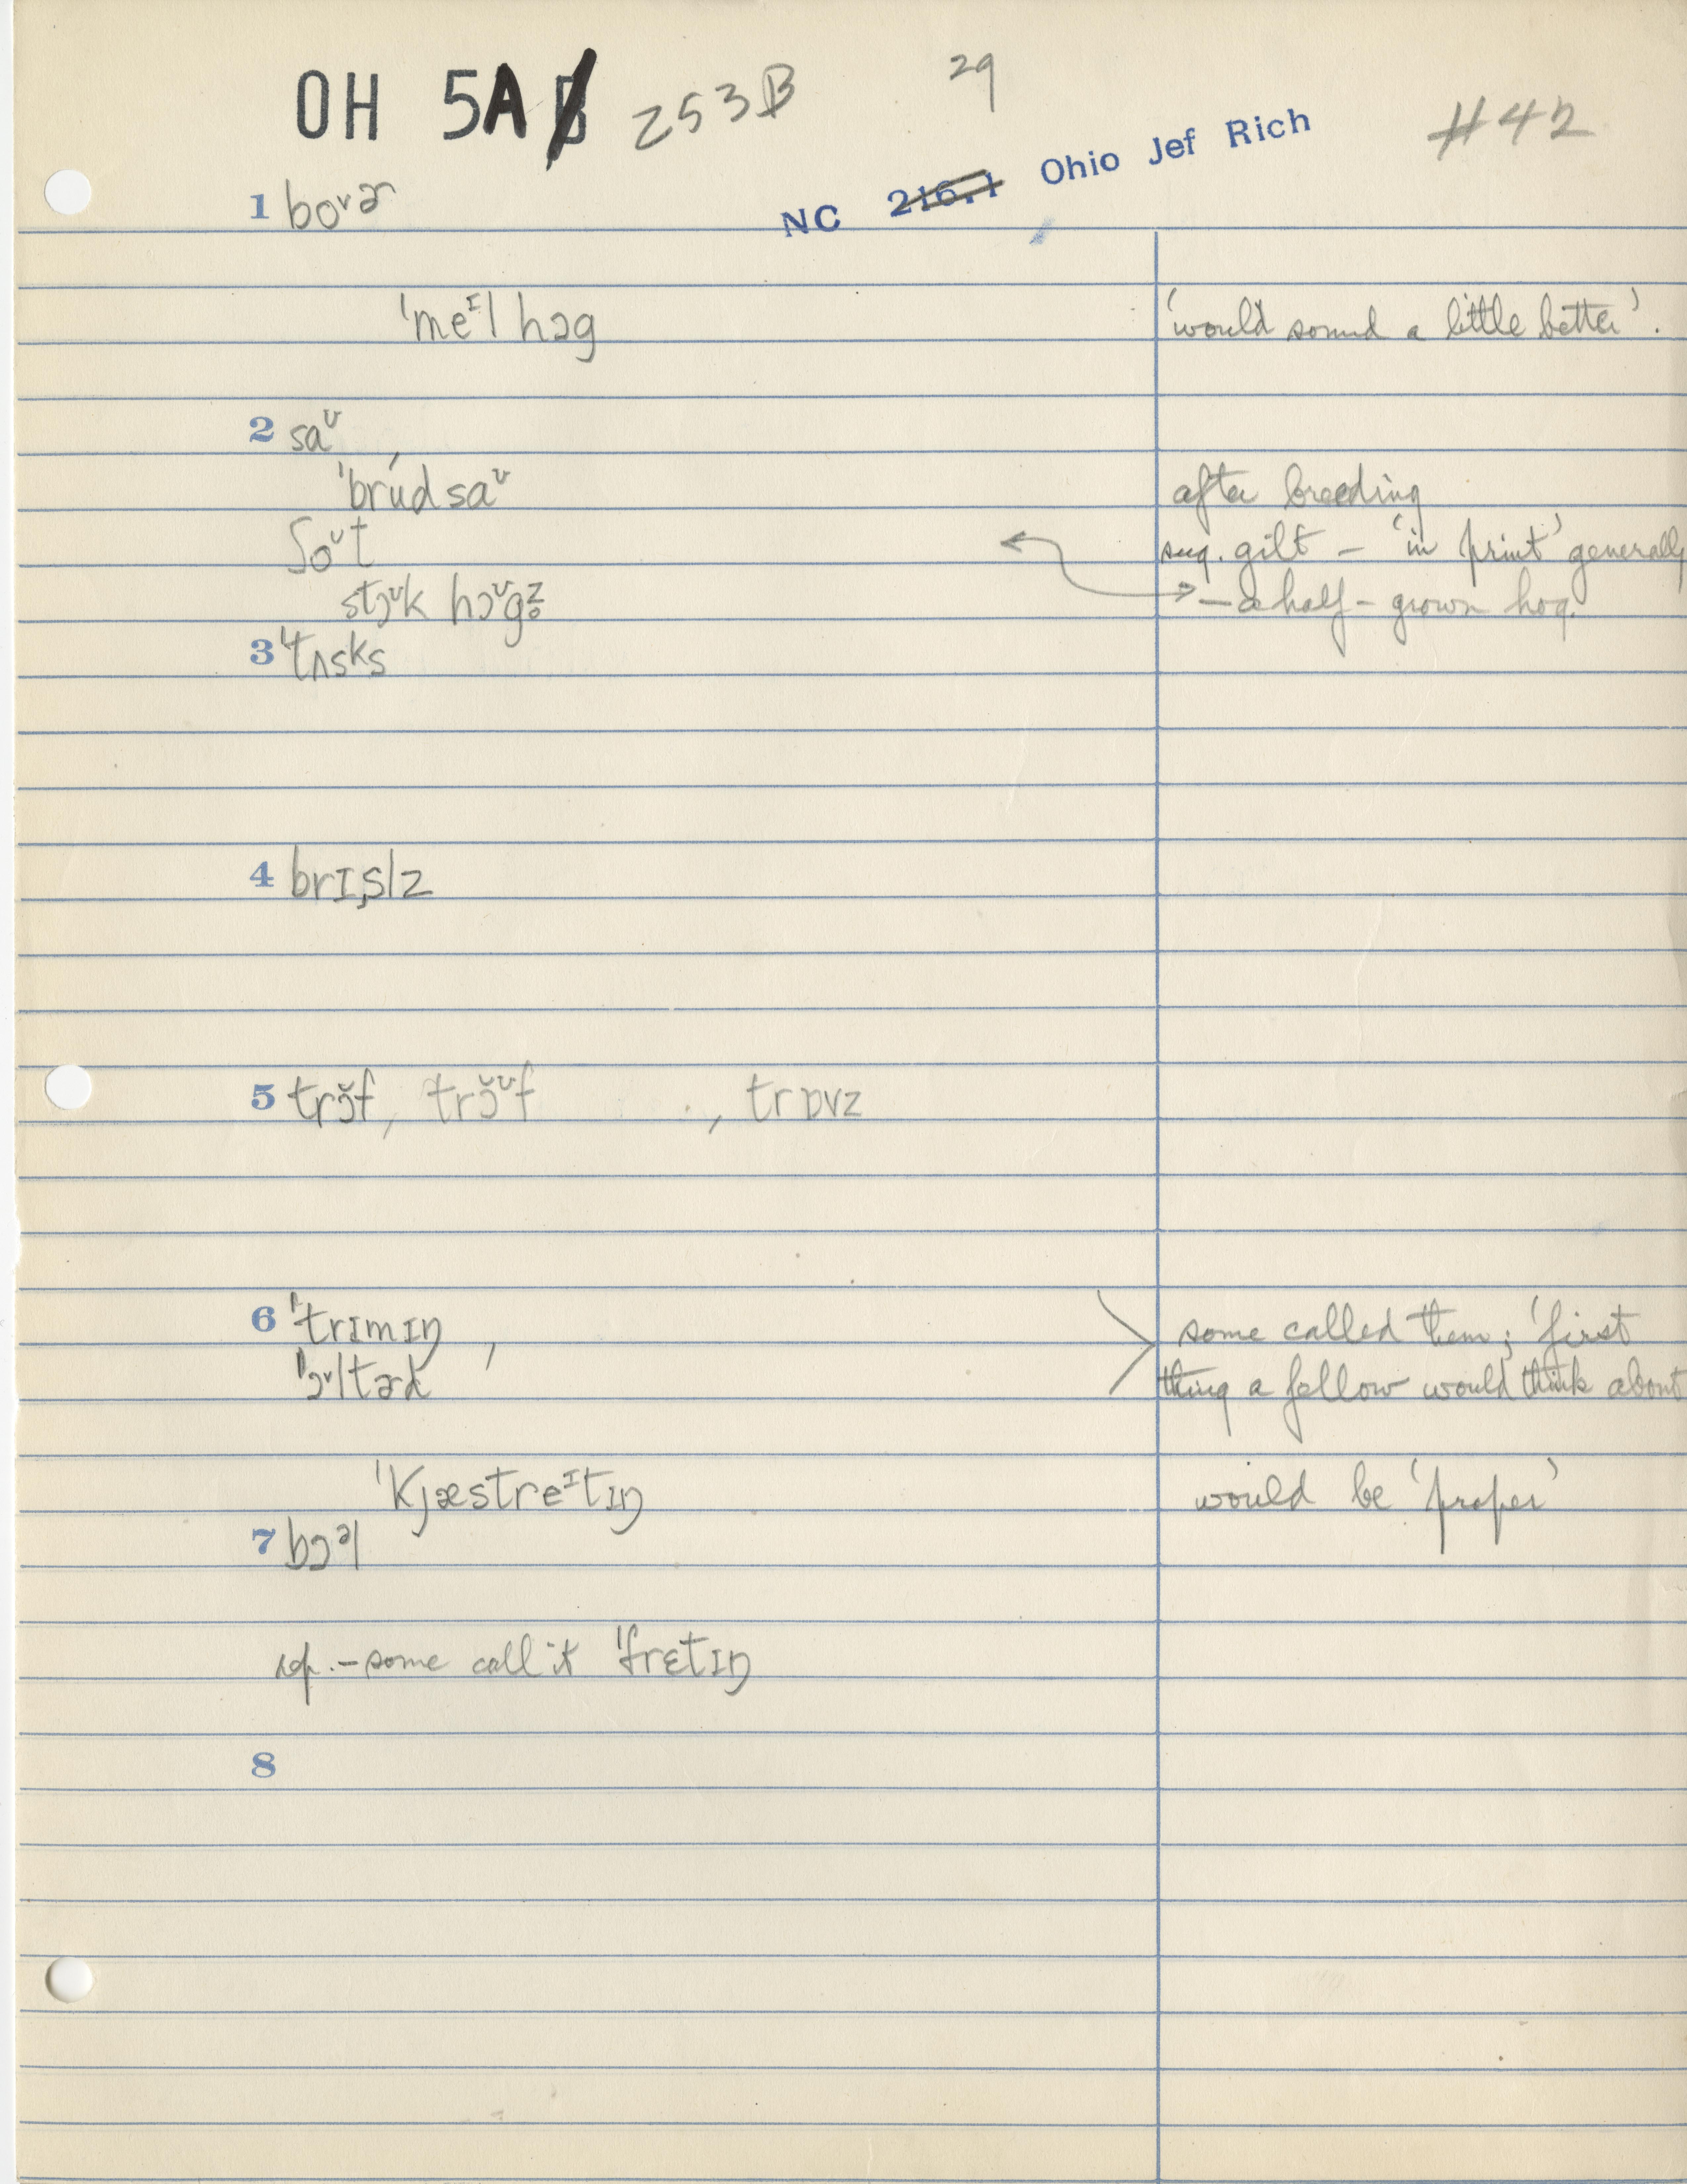 OH 5A 253B 29 #42
NC 216.1 Ohio Jef Rich
1 bo˅ɚ
ˈmeᶦl hɔg ‘would sound a little better’.
2 saᶷ
ˈbrúd saᶷ after breeding
ʃoᶷt sug. gilt – ‘in print’ generally
stɔᶷk hɔᶷgz̥ – a half-grown hog.
3 ˈtʌsks
4 brɪslz
5 trɔ̆f, trɔ̆ᶷf , trɒvz
6 ˈtrɪmɪŋ , some called them; ‘first
ˈɔ˅ltɚd thing a fellow would think about
ˈkjæstreᶦtɪŋ would be ‘proper’
7 bɔᵊl
rep. – some call it ˈfrɛtɪŋ
8